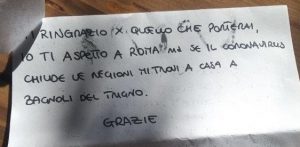 TI RINGRAZIO X QUELLO CHE PORTERAI,
IO TI ASPETTO A ROMA MA SE IL CORONAVIRUS
CHIUDE LE REGIONI MI TROVI A CASA A
BAGNOLI DEL TRIGNO.
GRAZIE